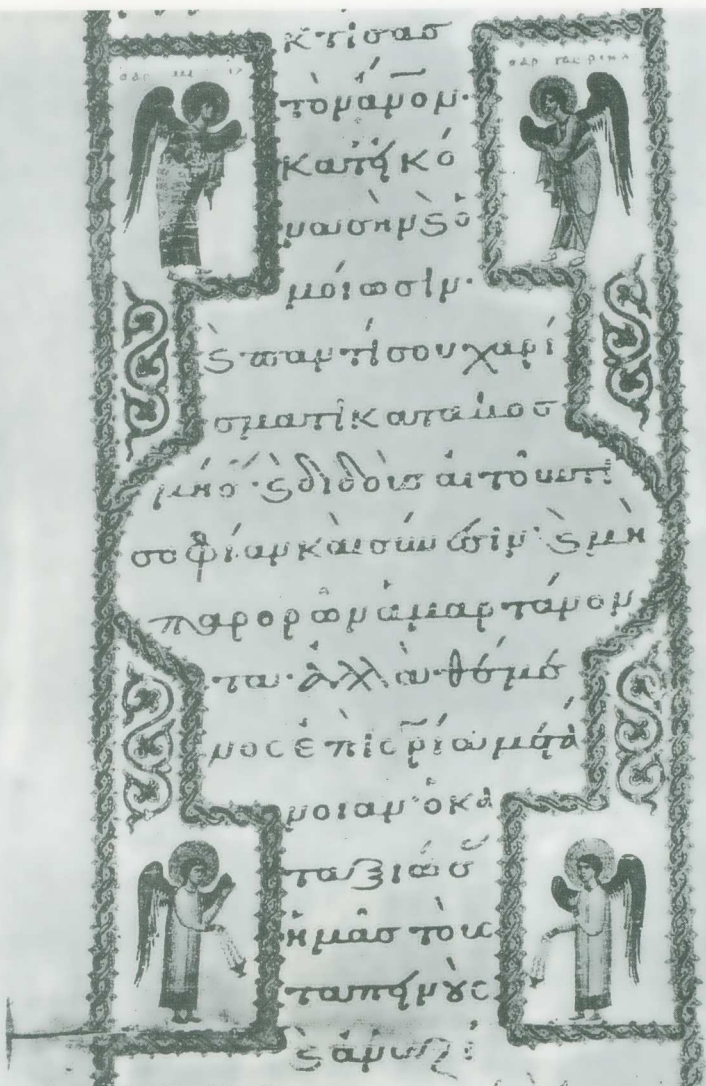 κτίσας
ὁ ἀρ γαβριηλ
τὸν ἄνον·
κατ εἰκό
να σὴν ϛ ὁ
μοίωσιν·
ϛ παντί σου χαρί
σματι κατακοσ
μήσ· ϛ διδοὺς αἰτοῦντι
σοφίαν καὶ σύνεσιν· ϛ μὴ
παρορῶν ἁμαρτάνον
τα· ἀλλὰ θέμε
νος ἐπὶ σρίαν μετά
νοιαν· ὁ κα
ταξιώσ
ἡμᾶς τοὺς
ταπεινοὺς
ϛ ἀναξί